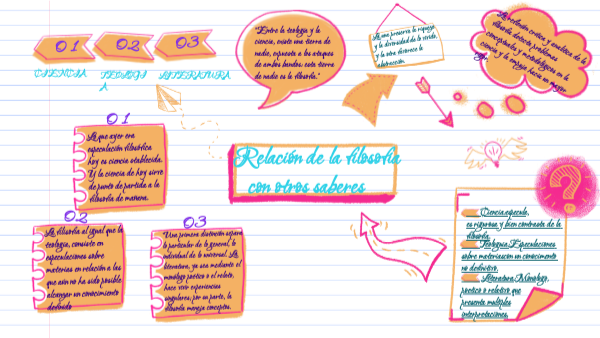 01
02
03
CIENCIA
TEOLOGI
A
LITERATURA
"Entre la teología y la
ciencia, existe una tierra de
nadie, expuesta a los ataques
de ambos bandos: esta tierra
de nadie es la filosofía."
La una preserva la riqueza
y la diversidad de lo vivido,
y la otra favorece la
abstracción.
La relación crítica y analítica de la
filosofía detecta problemas
conceptuales y metodológicos en la
ciencia y la empuja hacia un mayor
01
Lo que ayer era
especulación filosófica
hoy es ciencia establecida.
Y la ciencia de hoy sirve
de punto de partida a la
filosofía de mañana.
Relación de la filosofía
con otros saberes
02
La filosofía al igual que la
teología, consiste en
especulaciones sobre
materias en relación a las
que aún no ha sido posible
alcanzar un conocimiento
definido
03
Una primera distinción separa
lo particular de lo general, lo
individual de lo universal. La
literatura, ya sea mediante el
monólogo poético o el relato,
hace vivir experiencias
singulares; por su parte, la
filosofía maneja conceptos.
?
Ciencia:especula,
es rigurosa y bien contrasta de la
filosofía.
Teología:Especulaciones
sobre materias:son un conocimiento
no definitivo.
Literatura:Monólogo,
poético o relativo que
presenta múltiples
interpretaciones.